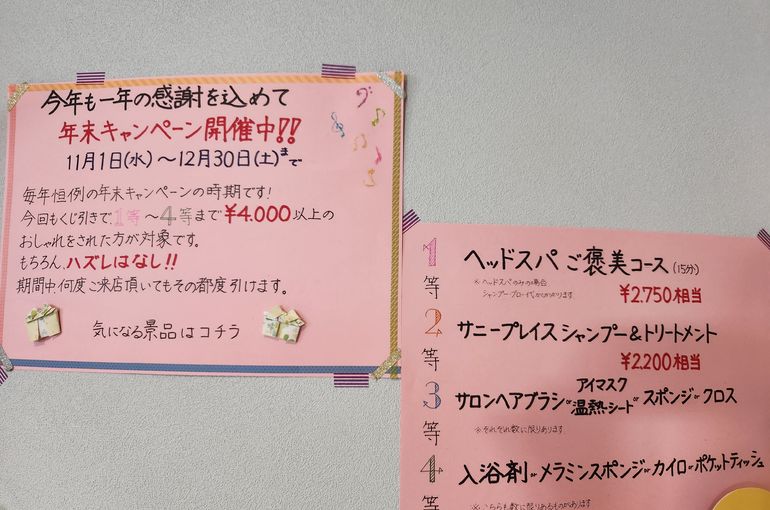 今年も一年の感謝を込めて
年末キャンペーン開催中!!
11月1日(水)〜12月30日(土)まで
毎年恒例の年末キャンペーンの時期です!
今回もくじ引きで1等〜4等まで¥4.000以上の
おしゃれをされた方が対象です。
もちろん、ハズレはなし!!
期間中何度ご来店頂いてもその都度引けます。
気になる景品はコチラ
1等 ヘッドスパ ご褒美コース(15分)
※ヘッドスパのみの場合
シャンプー・ブロー代がかかります
¥2.750相当
2等 サニープレイスシャンプー&トリートメント
¥2.200相当
3等 サロンヘアブラシorアイマスク温熱シートorスポンジorクロス
※それぞれ数に限りあります
4等 入浴剤orメラミンスポンジorカイロorポケットティッシュ
※こちらも数に限りあるものがあります